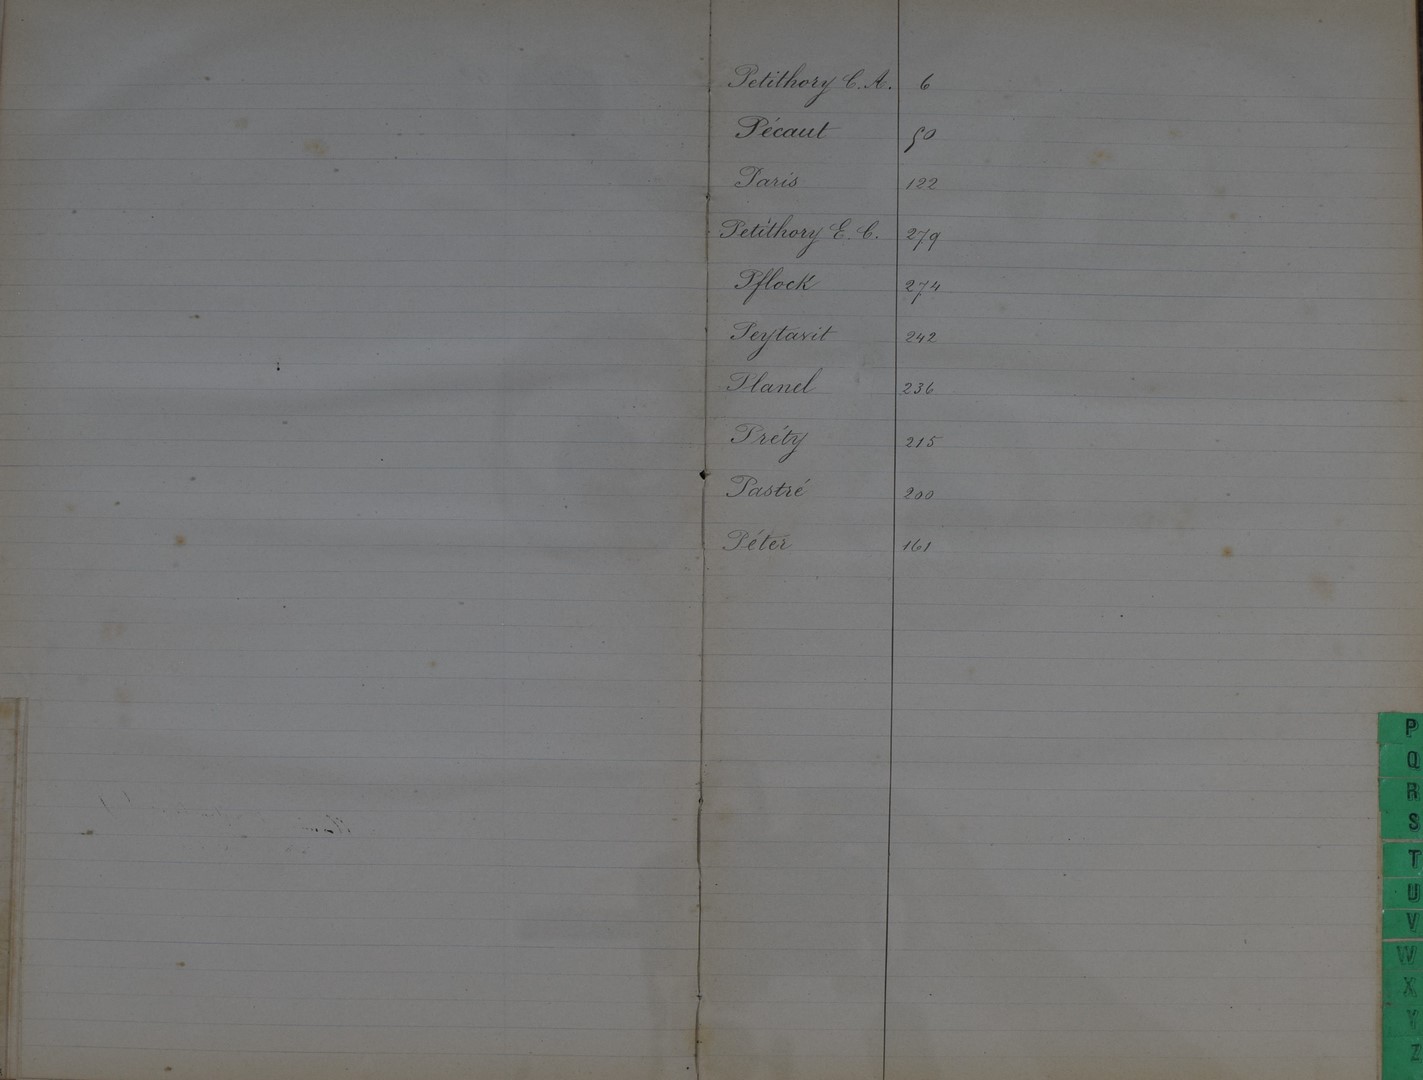 Petithory C. A. 6
Pécaut 50
Paris 122
Petithory E. C. 279
Pflock 274
Peytavit 242
Planel 236
Préty 215
Pastré 200
Péter 161
P
Q
R
S
T
U
V
W
X
Y
Z